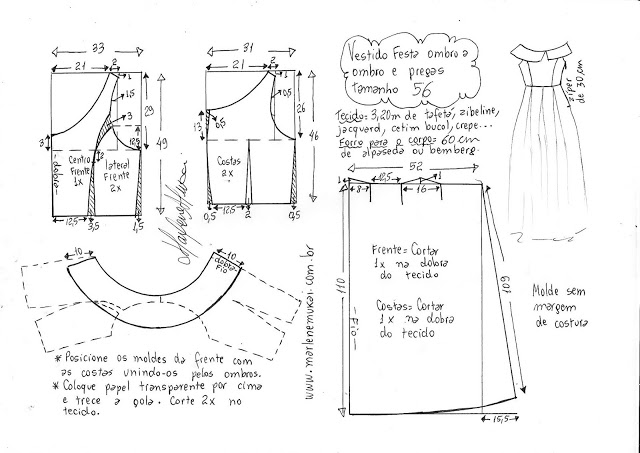 33
21
2
1
1,5
3
29
49
3
12,5
2
dobra
Centro
Frente
1x
lateral
Frente
2x
12,5
3,5
1,5
31
21
2
1
0,5
26
46
13
0,5
Costas
2x
0,5
12,5
2
0,5
Vestido Festa ombro a
ombro e pregas
tamanho 56
Tecido= 3,20m de tafetá, zibeline,
jacquard, cetim bucol, crepe...
Forro para o corpo= 60 cm
de alpaseda ou bemberg.
ziper
de 30 cm
52
1
8
12,5
16
1
110
Fio
109
15,5
Frente= Cortar
1x na dobra
do tecido
Costas= Cortar
1x na dobra
do tecido
Molde sem
margem
de costura
10
10
dobra
Fio
www.marlenemukai.com.br
* Posicione os moldes da frente com
as costas unindo-os pelos ombros.
* Coloque papel transparente por cima
e trece a gola. Corte 2x no
tecido.